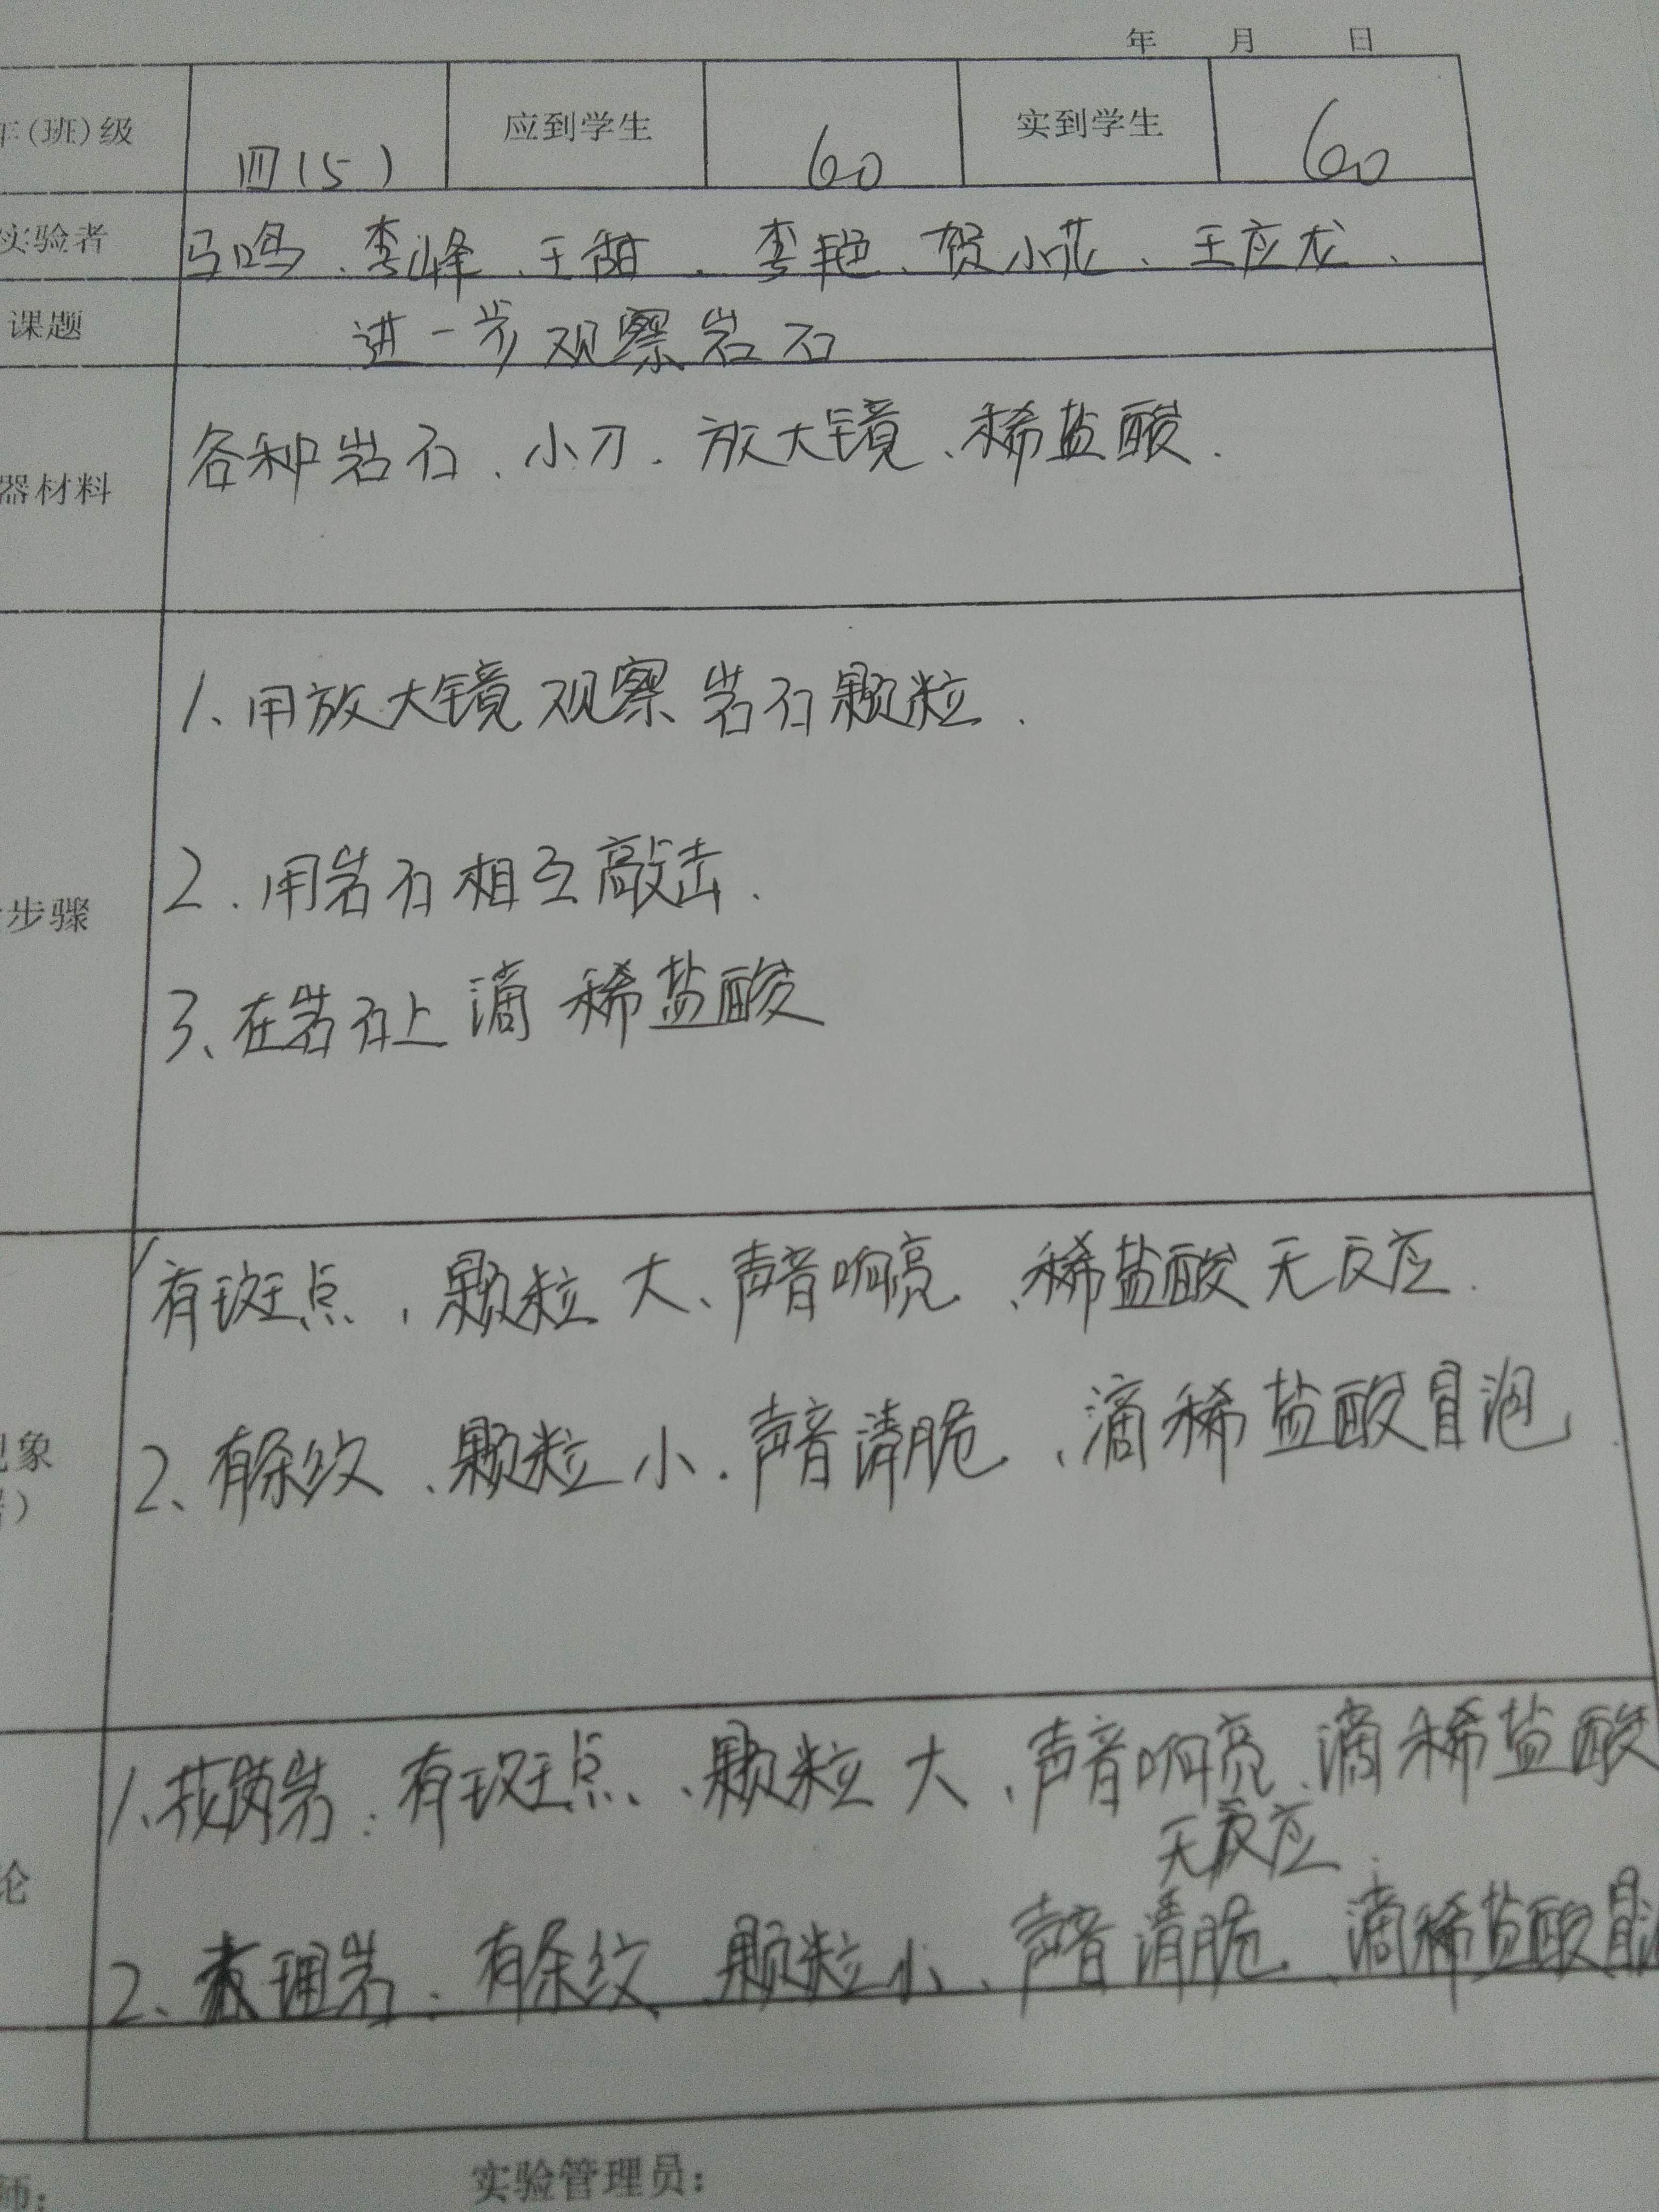 年 月 日
年(班)级 四(5) 应到学生 60 实到学生 60
实验者 马鸣、李峰、王甜、李艳、贺小花、王应龙、
课题 进一步观察岩石
器材料 各种岩石、小刀、放大镜、稀盐酸.
1、用放大镜观察岩石颗粒.
2.用岩石相互敲击.
步骤
3、在岩石上滴稀盐酸
1有斑点、颗粒大、声音响亮、稀盐酸无反应.
现象
2、有条纹、颗粒小.声音清脆、滴稀盐酸冒泡
1、花岗岩:有斑点、颗粒大、声音响亮、滴稀盐酸
无反应.
论
2、大理岩:有条纹、颗粒小、声音清脆、滴稀盐酸冒
师: 实验管理员: